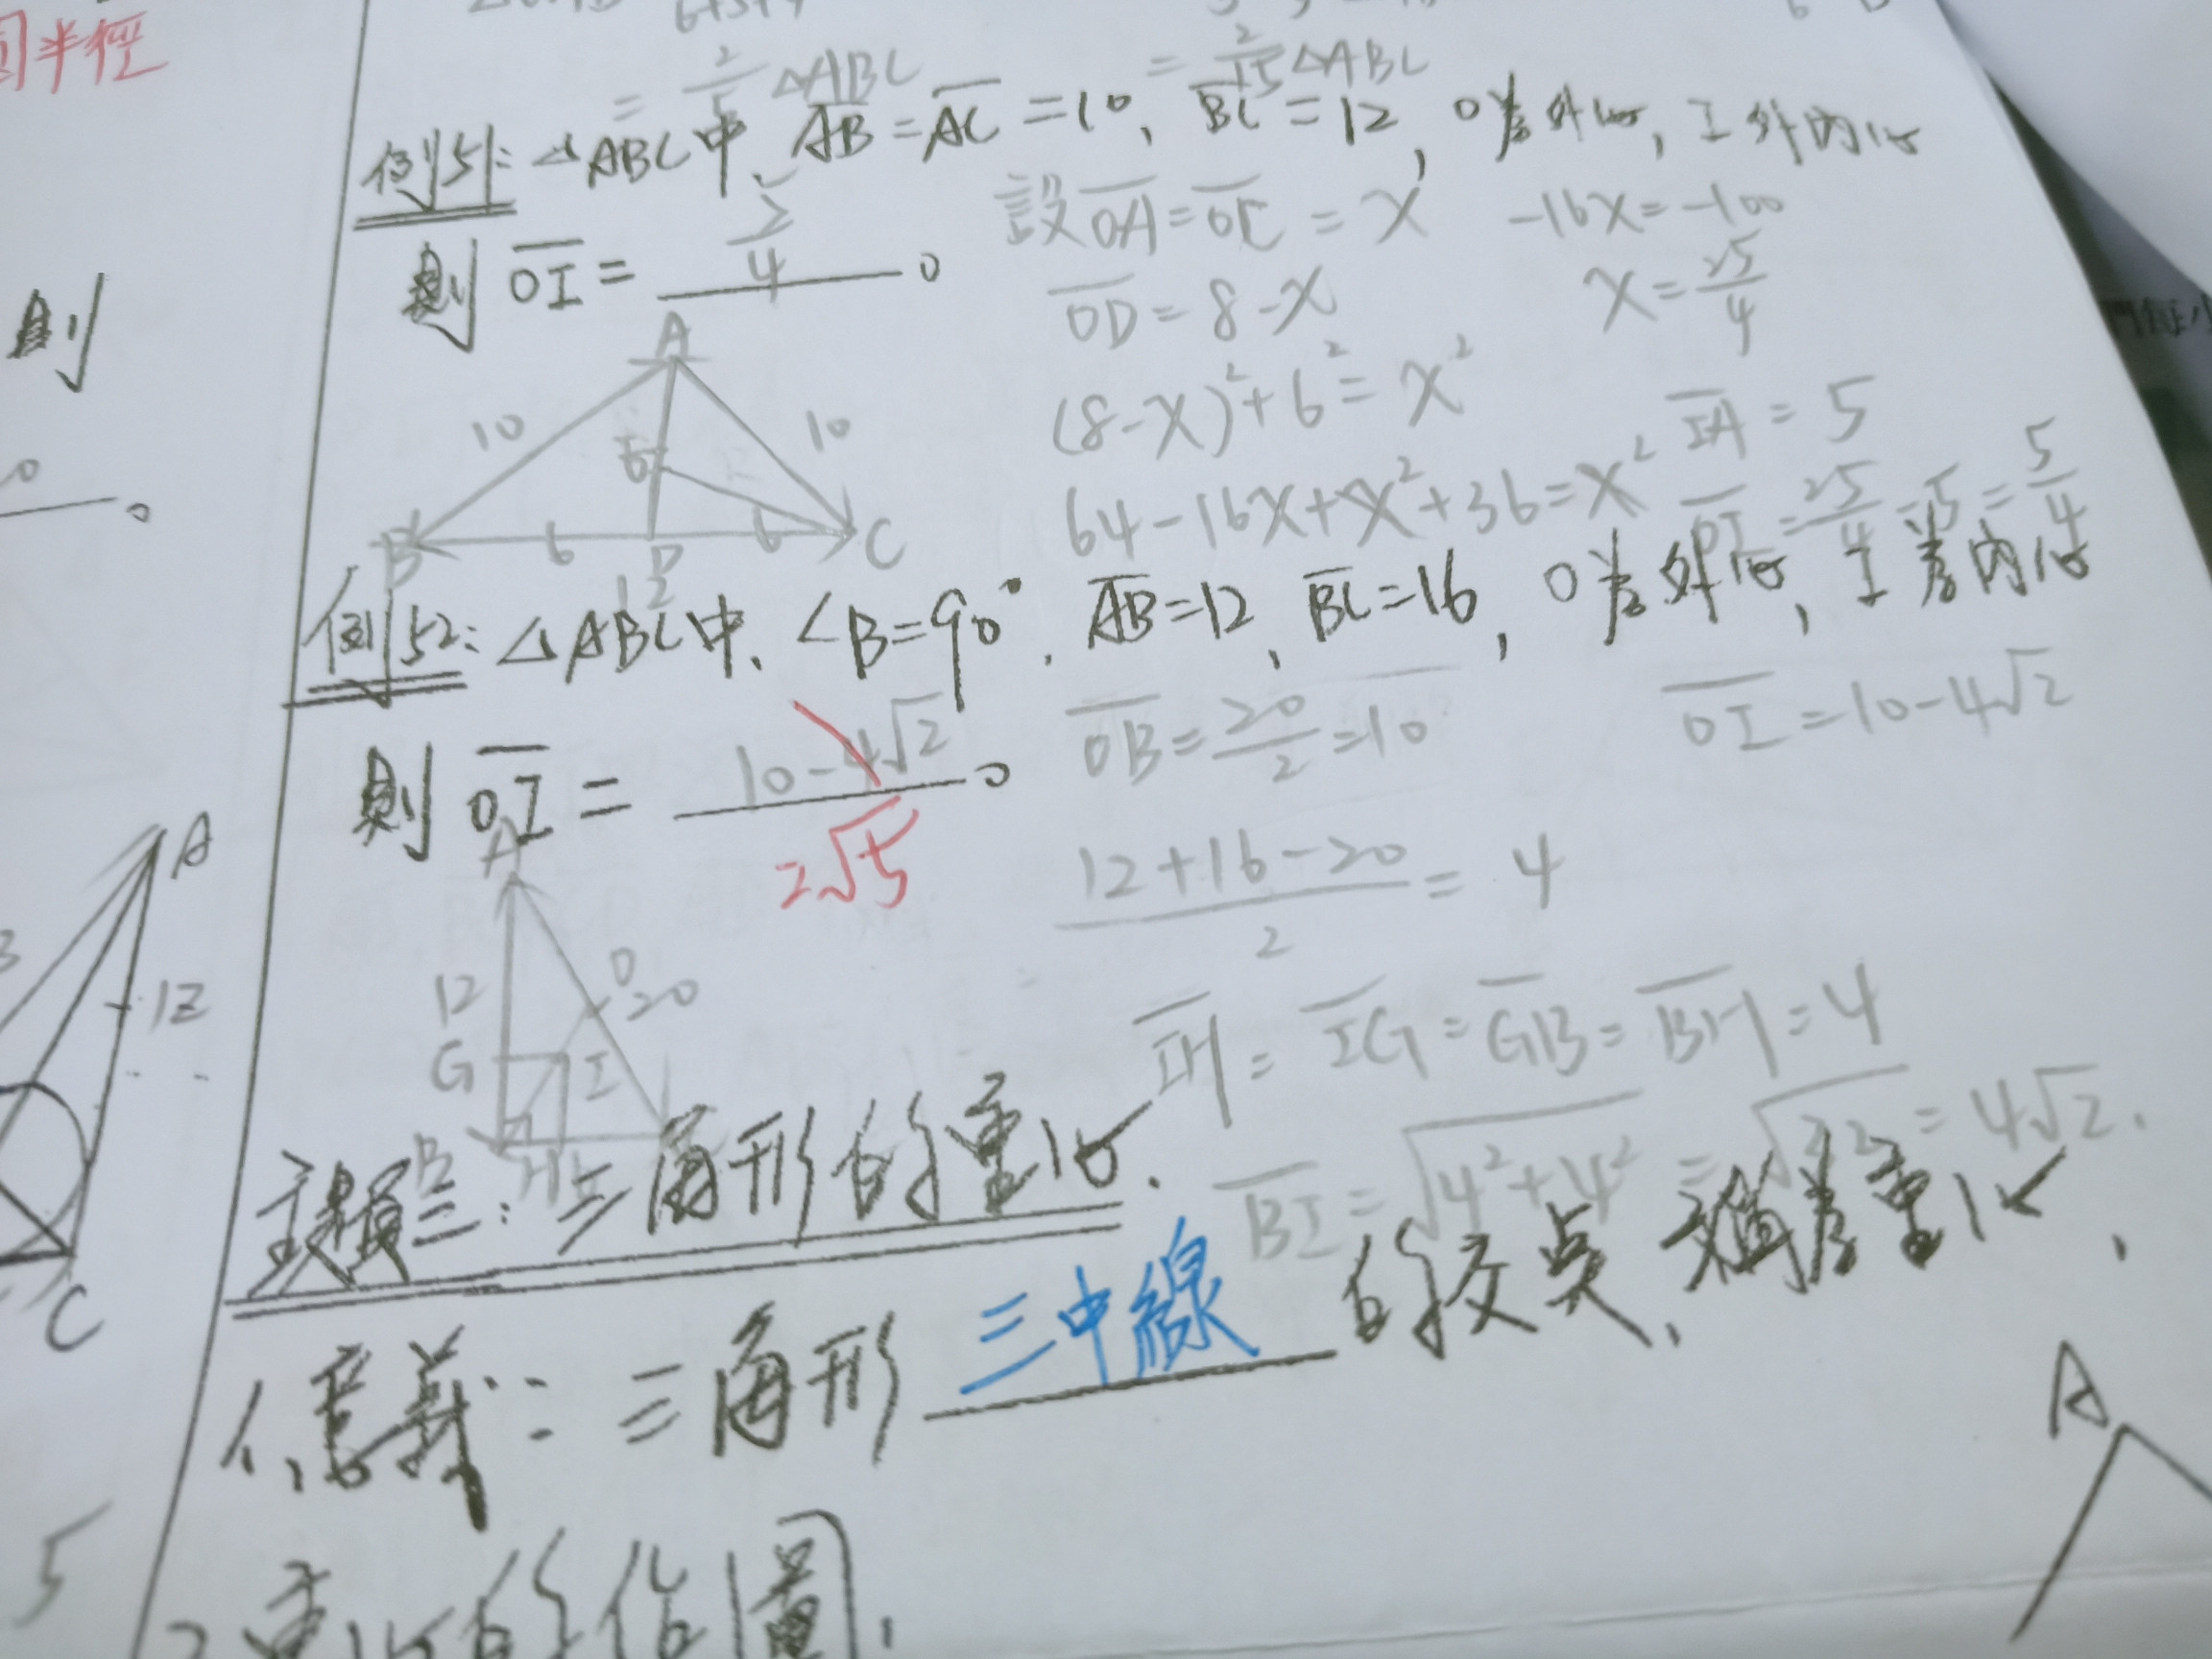 圓半徑
則
= 2/5 △ABC
= 2/15 △ABC
例51: △ABC中, AB=AC=10, BC=12, O為外心, I為內心
則 OI = 5/4 。
設OA=OC=x
OD=8-x
(8-x)²+6²=x²
64-16x+x²+36=x²
-16x=-100
x=25/4
IA=5
OI=25/4-5=5/4
A
10
10
B
6
D
6
C
12
例52: △ABC中, ∠B=90°, AB=12, BC=16, O為外心, I為內心
則 OI = 10-4√2 。
2√5
OB=20/2=10
OI=10-4√2
(12+16-20)/2=4
IH=IG=GB=BH=4
BI=√(4²+4²)=√32=4√2.
A
12
O
20
G
I
B
H
A
12
C
5
主題三:三角形的重心.
1、意義:三角形 三中線 的交点,稱為重心,
A
2、重心的作圖,